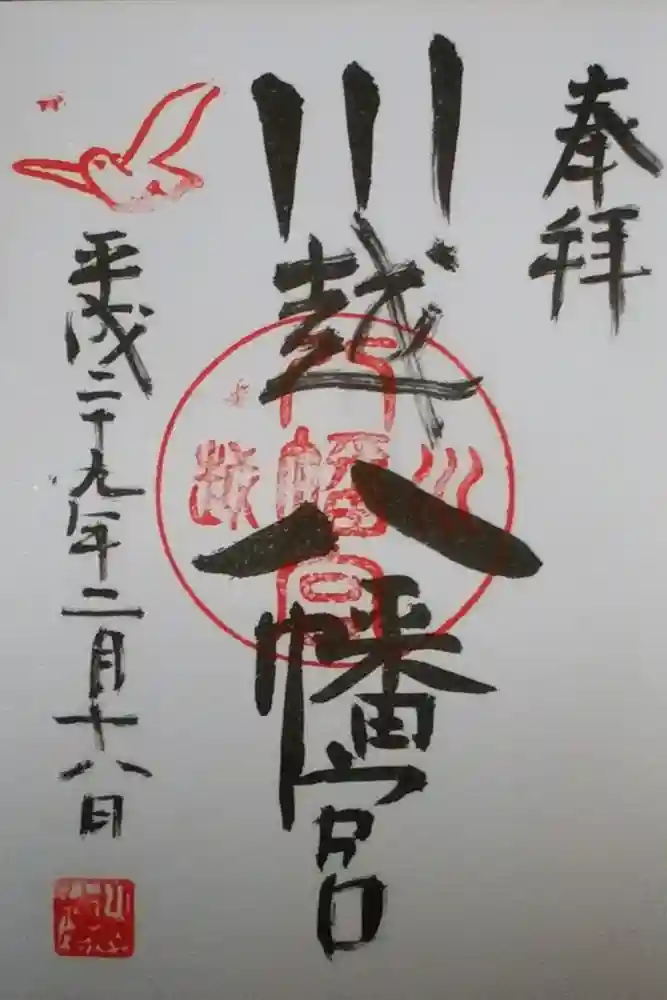 奉拝
川越八幡宮
平成二十九年二月十八日
川越
八幡宮